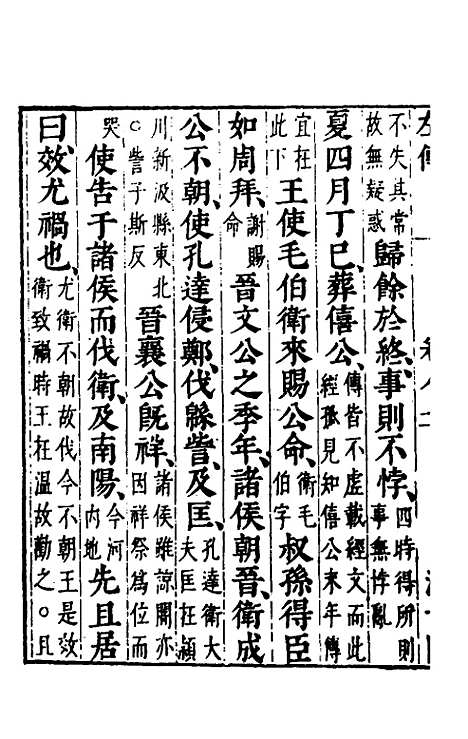 不失其常故無疑惑歸餘於終事則不悖四時得所則事無悖亂
夏四月丁巳葬僖公傳皆不虛載經文而此經孤見知僖公末年傳
宜在此下王使毛伯衛來賜公命衛毛伯字叔孫得臣
如周拜謝賜命晉文公之季年諸侯朝晉衛成
公不朝使孔達侵鄭伐緜訾及匡孔達衛大夫匡在潁
川新汲縣東北○訾子斯反晉襄公旣祥諸侯雖諒闇亦因祥祭爲位而
哭使告于諸侯而伐衛及南陽今河內地先且居
曰效尤禍也尤衛不朝故伐今不朝王是效衛致禍時王在溫故勸之○且